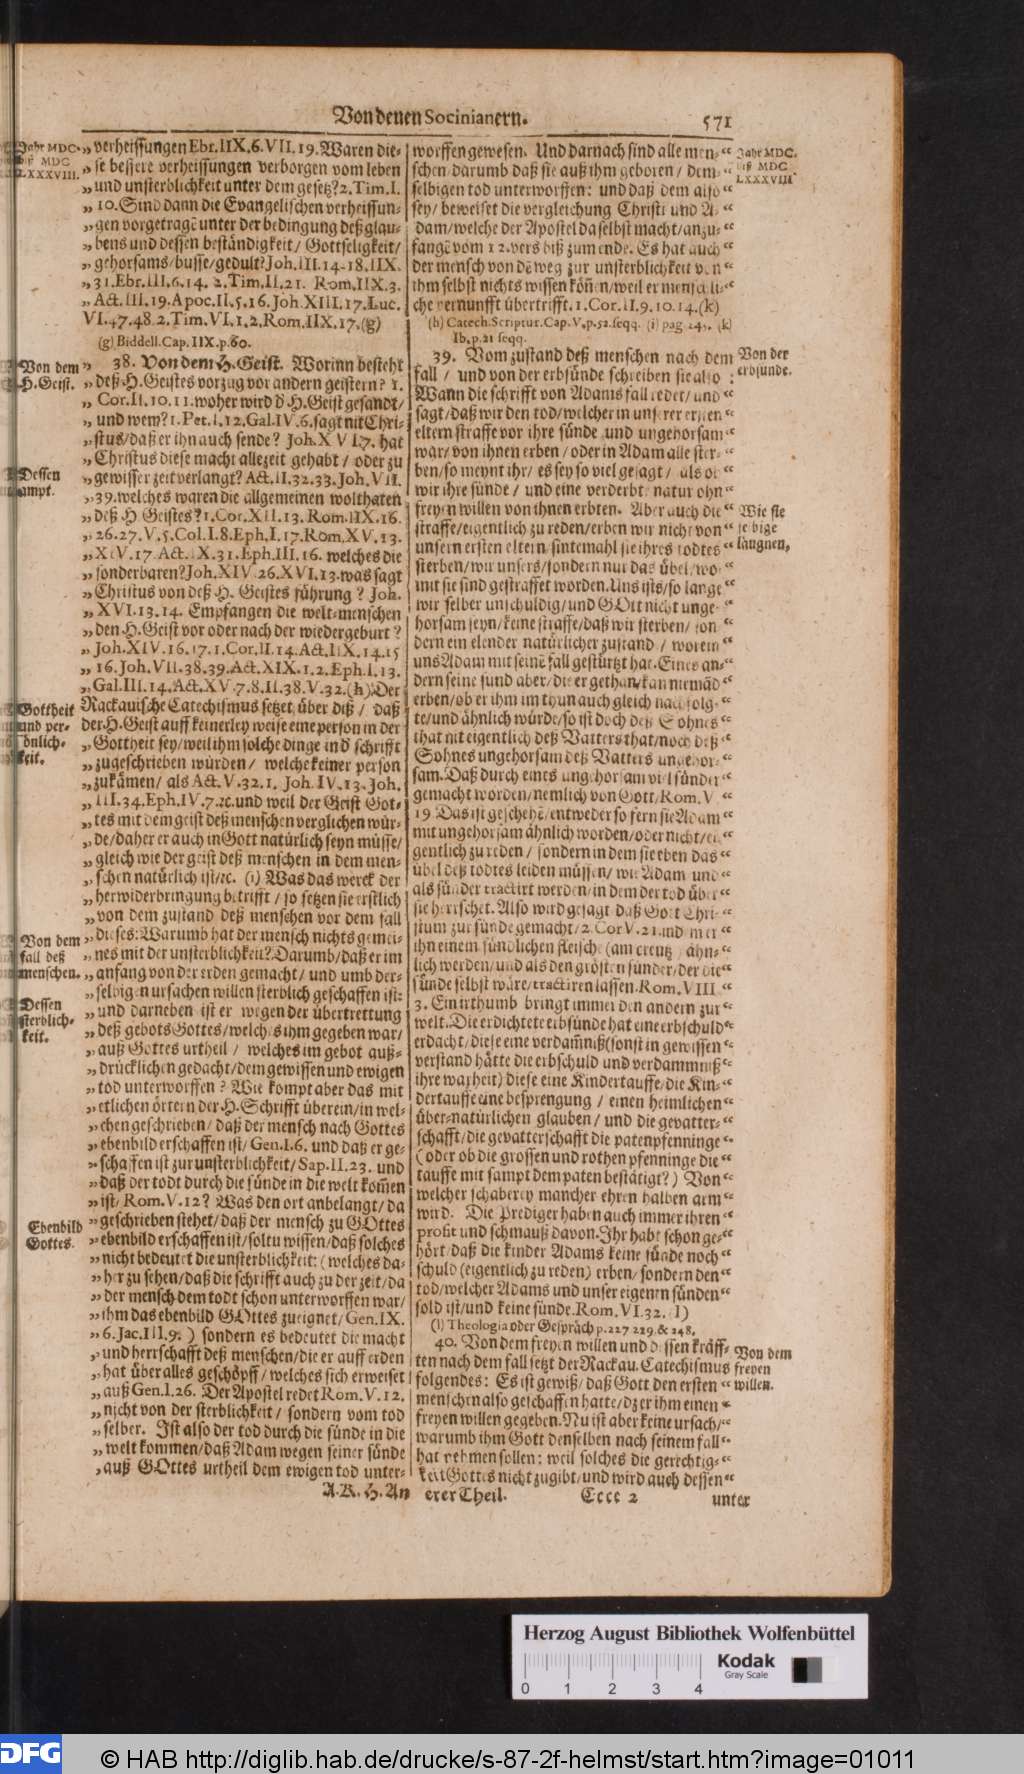 Von denen Socinianern.
571
Jahr MDC.
biß MDC
LXXXVIII.
„ verheissungen Ebr. IIX, 6. VII, 19. Waren die-
„ se bessere verheissungen verborgen vom leben
„ und unsterblichkeit unter dem gesetz? 2. Tim. I.
„ 10. Sind dann die Evangelischen verheissun-
„ gen vorgetragē unter der bedingung deß glau-
„ bens und dessen beständigkeit / Gottseligkeit /
„ gehorsams / busse / gedult? Joh. III. 14-18. IIX.
„ 31. Ebr. III, 6. 14. 2. Tim. II, 21. Rom, IIX. 3.
„ Act. III. 19. Apoc. II. 5. 16. Joh. XIII. 17. Luc.
VI. 47. 48 2. Tim. VI. 1. 2. Rom, IIX. 17. (g)
(g) Biddell. Cap. IIX. p. 60.
Von dem
H. Geist.
„ 38. Von dem H. Geist. Worinn besteht
„ deß H. Geistes vorzug vor andern geistern? 1.
„ Cor. II. 10. 11. woher wird d' H. Geist gesandt /
„ und wem? 1. Pet. I. 12. Gal. IV. 6. sagt nit Chri-
„ stus / daß er ihn auch sende? Joh. XVI. 7. hat
„ Christus diese macht allezeit gehabt / oder zu
Dessen
ampt.
„ gewisser zeit verlangt? Act. II. 32. 33. Joh. VII.
„ 39. welches waren die allgemeinen wolthaten
„ deß H Geistes? 1. Cor. XII. 13. Rom. IIX. 16.
„ 26. 27. V. 5. Col. I. 8. Eph. I. 17. Rom. XV. 13.
„ XIV. 17. Act. IX. 31. Eph. III. 16. welches die
„ sonderbaren? Joh. XIV. 26. XVI. 13. was sagt
„ Christus von deß H. Geistes führung? Joh.
„ XVI. 13. 14. Empfangen die welt-menschen
„ den H. Geist vor oder nach der wiedergeburt?
„ Joh. XIV. 16. 17. 1. Cor. II. 14. Act. IIX. 14. 15
„ 16. Joh. VII. 38. 39. Act. XIX. 1. 2. Eph. I. 13.
„ Gal. III. 14. Act. XV. 7. 8. II. 38. V. 32. (h) Der
Gottheit
und per-
sönlich-
keit.
Rackauische Catechismus setzet über diß / daß
der H. Geist auff keinerley weise eine person in der
„ Gottheit sey / weil ihm solche dinge in d' schrifft
„ zugeschrieben würden / welche keiner person
„ zukämen / als Act. V. 32. 1. Joh. IV. 13. Joh.
„ III. 34. Eph. IV. 7. ꝛc. und weil der Geist Got-
„ tes mit dem geist deß menschen verglichen wür-
„ de / daher er auch in Gott natürlich seyn müsse /
„ gleich wie der geist deß menschen in dem men-
„ schen natürlich ist / ꝛc. (i) Was das werck der
„ herwiderbringung betrifft / so setzen sie erstlich
„ von dem zustand deß menschen vor dem fall
Von dem
fall deß
menschen.
„ dieses: Warumb hat der mensch nichts gemei-
„ nes mit der unsterblichkeit? Darumb / daß er im
„ anfang von der erden gemacht / und umb der-
„ selbigen ursachen willen sterblich geschaffen ist:
Dessen
sterblich-
keit.
„ und darneben ist er wegen der übertrettung
„ deß gebots Gottes / welches ihm gegeben war /
„ auß Gottes urtheil / welches im gebot auß-
„ drücklichen gedacht / dem gewissen und ewigen
„ tod unterworffen? Wie kompt aber das mit
„ etlichen örtern der H. Schrifft überein / in wel-
„ chen geschrieben / daß der mensch nach Gottes
„ ebenbild erschaffen ist / Gen. I. 6. und daß er ge-
„ schaffen ist zur unsterblichkeit / Sap. II. 23. und
„ daß der todt durch die sünde in die welt kom̄en
„ ist / Rom. V. 12? Was den ort anbelangt / da
Ebenbild
Gottes.
„ geschrieben stehet / daß der mensch zu GOttes
„ ebenbild erschaffen ist / soltu wissen / daß solches
„ nicht bedeutet die unsterblichkeit: (welches da-
„ her zu sehen / daß die schrifft auch zu der zeit / da
„ der mensch dem todt schon unterworffen war /
„ ihm das ebenbild GOttes zueignet / Gen. IX.
„ 6. Jac. III. 9.) sondern es bedeutet die macht
„ und herrschafft deß menschen / die er auff erden
„ hat über alles geschöpff / welches sich erweiset
„ auß Gen. I. 26. Der Apostel redet Rom. V. 12.
„ nicht von der sterblichkeit / sondern vom tod
„ selber. Ist also der tod durch die sünde in die
„ welt kommen / daß Adam wegen seiner sünde
„ auß GOttes urtheil dem ewigen tod unter-
Jahr MDC.
biß MDC
LXXXVIII.
worffen gewesen. Und darnach sind alle men- “
schen darumb daß sie auß ihm geboren / dem- “
selbigen tod unterworffen: und daß dem also “
sey / beweiset die vergleichung Christi und A- “
dam / welche der Apostel daselbst macht / anzu- “
fangē vom 12. vers biß zum ende. Es hat auch “
der mensch von dē weg zur unsterblichkeit von “
ihm selbst nichts wissen könen / weil er menschli- “
che vernunfft übertrifft. 1. Cor. II. 9. 10. 14. (k)
(h) Catech. Scriptur. Cap. V. p. 52. seqq. (i) pag 245. (k)
Ib. p. 21 seqq.
Von der
erbsünde.
39. Vom zustand deß menschen nach dem
fall / und von der erbsünde schreiben sie also:
Wann die schrifft von Adams fall redet / und “
sagt / daß wir den tod / welcher in unserer ersten “
eltern straffe vor ihre sünde und ungehorsam “
war / von ihnen erben / oder in Adam alle ster- “
ben / so meynt ihr / es sey so viel gesagt / als ob “
wir ihre sünde / und eine verderbte natur ohn “
freyen willen von ihnen erbten. Aber auch die “
Wie sie
selbige
läugnen,
straffe / eigentlich zu reden / erben wir nicht von “
unsern ersten eltern / sintemahl sie ihres todtes “
sterben / wir unsers / sondern nur das übel / wo- “
mit sie sind gestraffet worden. Uns ists / so lange “
wir selber unschuldig / und GOtt nicht unge- “
horsam seyn / keine straffe / daß wir sterben / son “
dern ein elender natürlicher zustand / worein “
uns Adam mit seinē fall gestürtzt hat. Eines an- “
dern seine sünd aber / die er gethan / kan niemād “
erben / ob er ihm im thun auch gleich nachfolg- “
te / und ähnlich würde / so ist doch deß Sohnes “
that nit eigentlich deß Vatters that / noch deß “
Sohnes ungehorsam deß Vatters ungehor- “
sam. Daß durch eines ungehorsam viel sünder “
gemacht worden / nemlich von Gott / Rom. V. “
19 Das ist geschehē / entweder so fern sie Adam “
mit ungehorsam ähnlich worden / oder nicht / ei- “
gentlich zu reden / sondern in dem sie eben das “
übel deß todtes leiden müssen / wie Adam und “
als sünder tractirt werden / in dem der tod über “
sie herrschet. Also wird gesagt daß Gott Chri- “
stum zur sünde gemacht / 2 Cor V. 21. und in er “
ihn einem sündlichen fleische (am creutz) ähn- “
lich werden / und als den grösten sünder / der die “
sünde selbst wäre / tractiren lassen. Rom. VIII “
3. Ein irthumb bringt immer den andern zur “
welt. Die erdichtete erbsünde hat eine erbschuld “
erdacht / diese eine verdam̄niß (sonst in gewissen “
verstand hätte die erbschuld und verdammniß “
ihre warheit) diese eine Kindertauffe / die Kin- “
dertauffe eine besprengung / einen heimlichen “
über-natürlichen glauben / und die gevatter- “
schafft / die gevatterschafft die patenpfenninge “
(oder ob die grossen und rothen pfenninge die “
tauffe mit sampt dem paten bestätigt?) Von “
welcher schaberey mancher ehren halben arm “
wird. Die Prediger haben auch immer ihren “
profit und schmauß davon. Ihr habt schon ge- “
hört / daß die kinder Adams keine sünde noch “
schuld (eigentlich zu reden) erben / sondern den “
tod / welcher Adams und unser eigenen sünden “
sold ist / und keine sünde. Rom. VI. 32. (l)
(l) Theologia oder Gespräch p. 227 229. & 248.
Von dem
freyen
willen.
40. Von dem freyen willen und dessen kräff-
ten nach dem fall setzt der Rackau. Catechismus
folgendes: Es ist gewiß / daß Gott den ersten “
menschen also geschaffen hatte / dz er ihm einen “
freyen willen gegeben. Nu ist aber keine ursach / “
warumb ihm Gott denselben nach seinem fall “
hat nehmen sollen: weil solches die gerechtig- “
keit Gottes nicht zugibt / und wird auch dessen “
A. K. H. An erer Theil. Cccc 2 unter
Herzog August Bibliothek Wolfenbüttel
Kodak
Gray Scale
0 1 2 3 4
DFG © HAB http://diglib.hab.de/drucke/s-87-2f-helmst/start.htm?image=01011